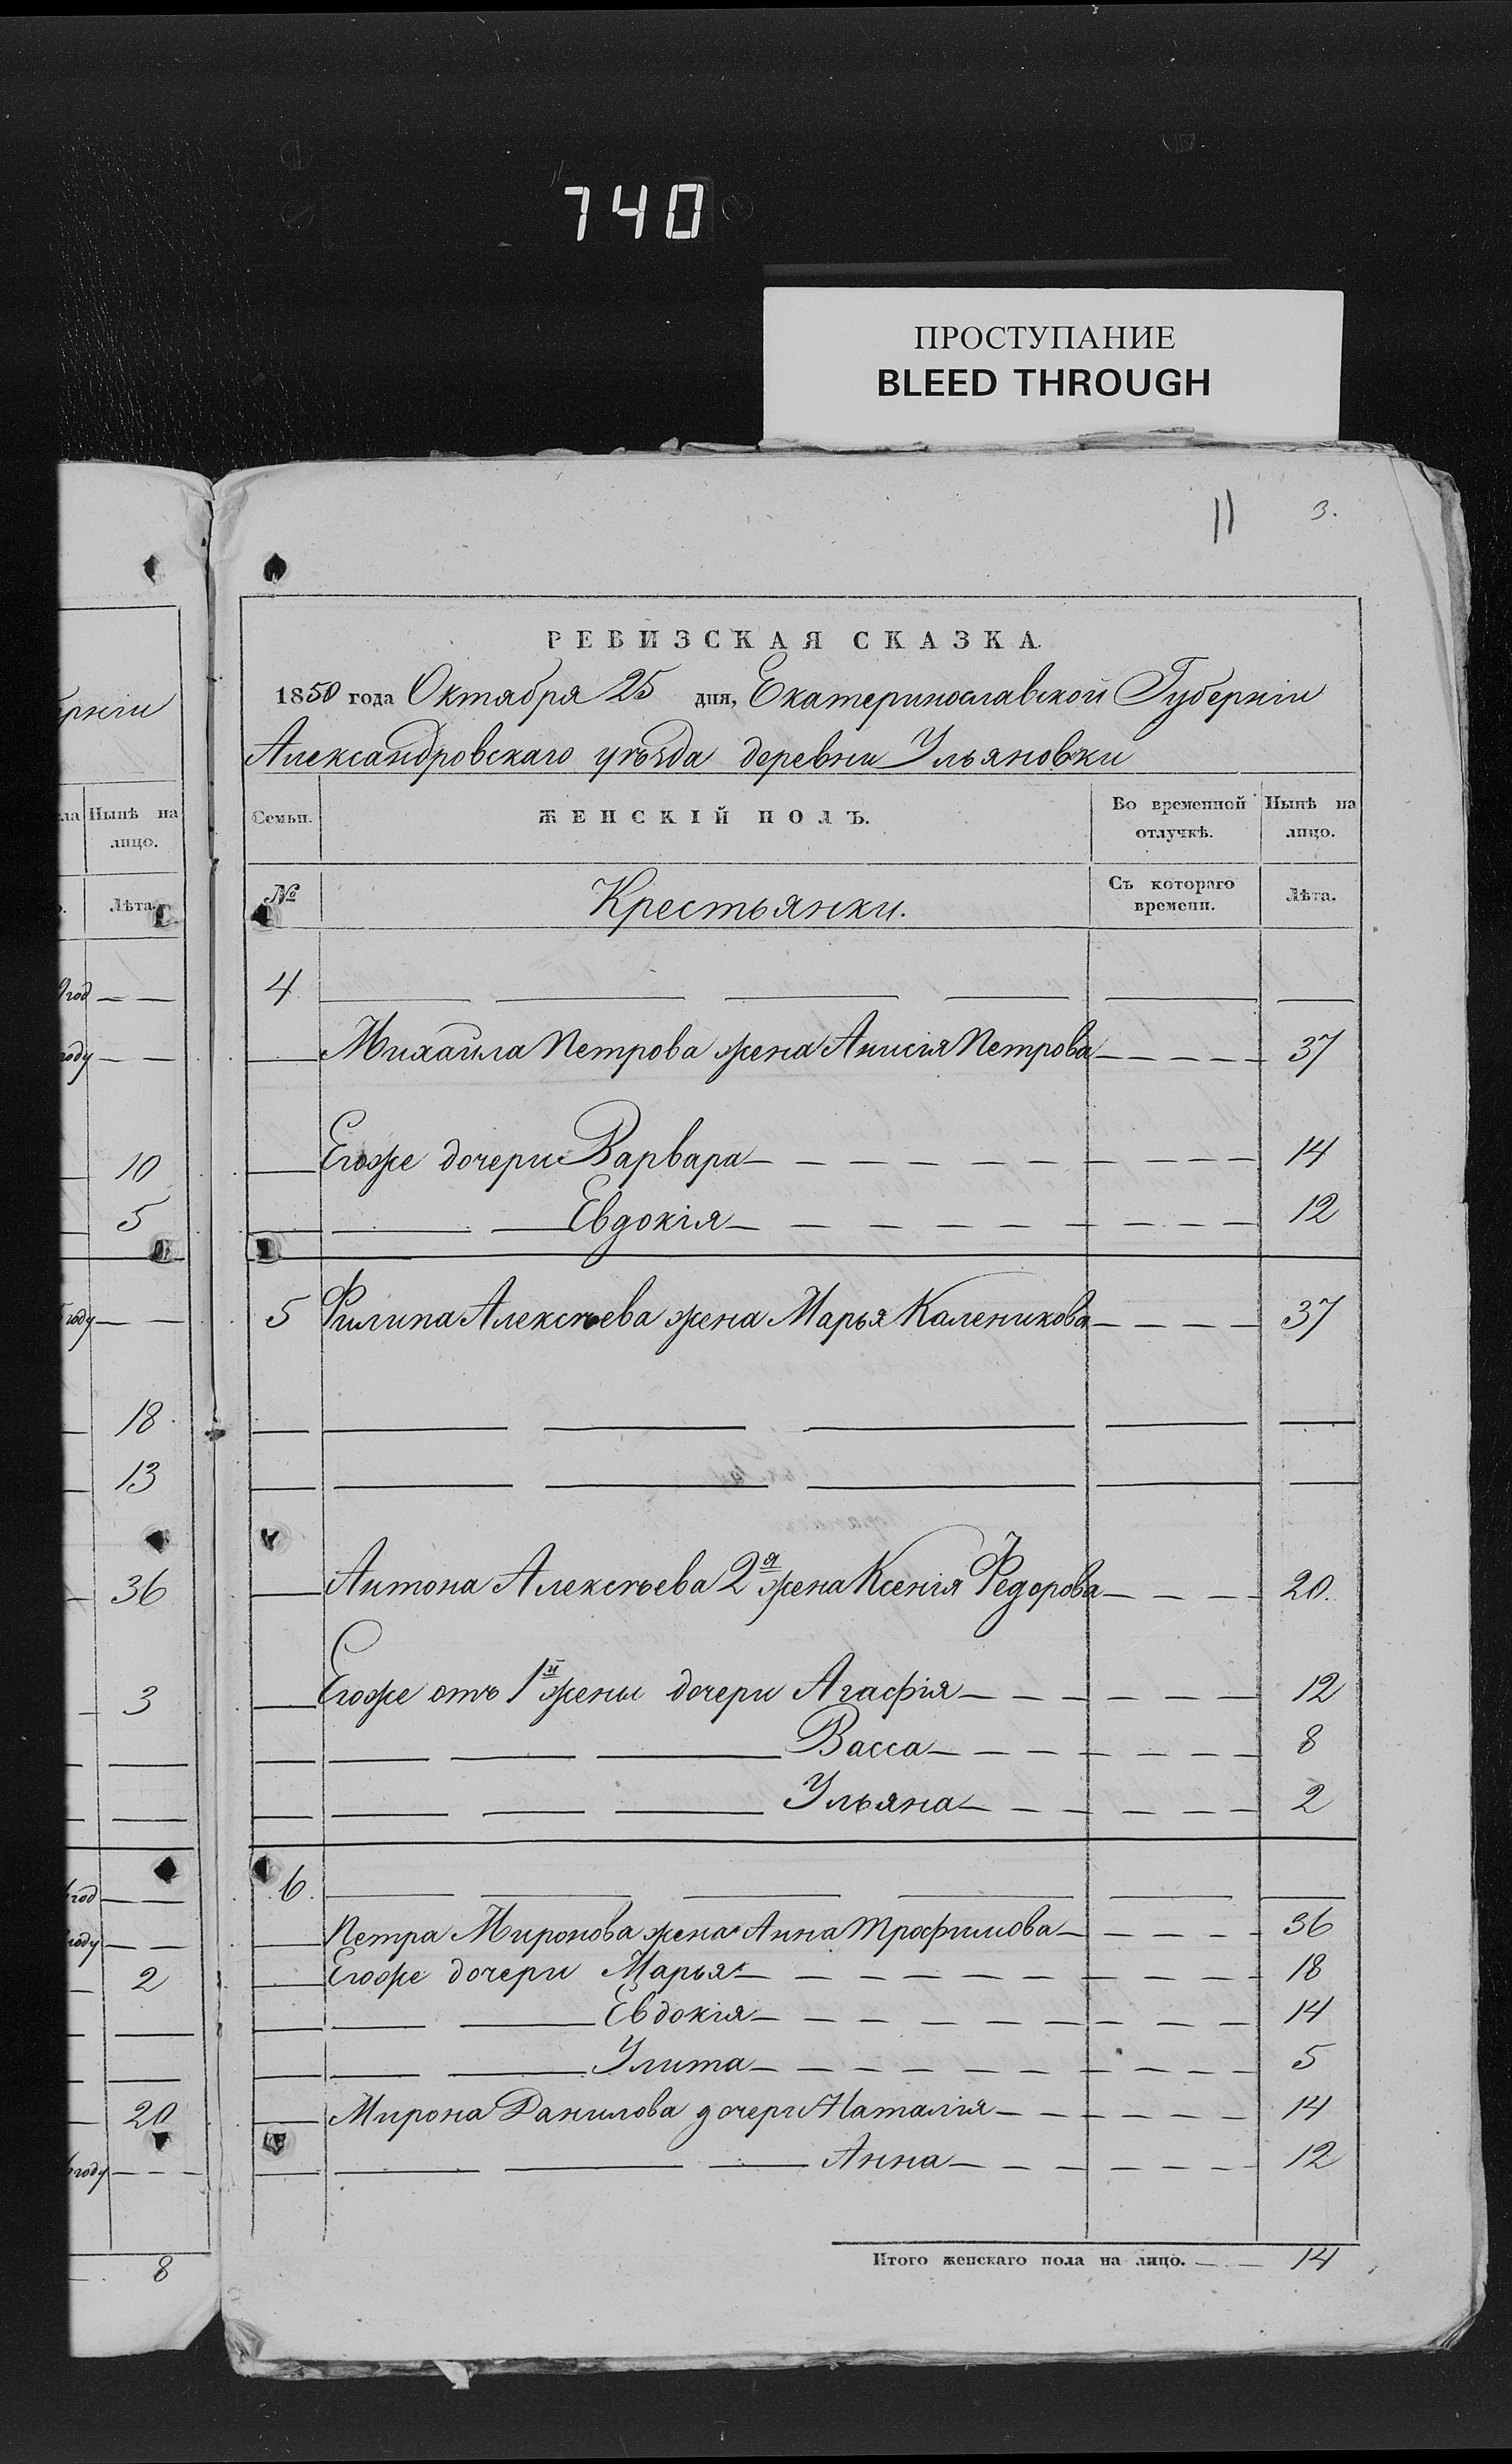 740
ПРОСТУПАНИЕ
BLEED THROUGH
11 3.
РЕВИЗСКАЯ СКАЗКА.
1850 года Октября 25 дня, Екатеринославской Губернiи
Александровскаго уѣзда деревни Ульяновки
Семьи. ЖЕНСКIЙ ПОЛЪ. Во временной отлучкѣ. Нынѣ на лицо.
№ Крестьянки. Съ котораго времени. Лѣта.
4
Михайла Петрова жена Анисiя Петрова 37
Егоже дочери Варвара 14
Евдокiя 12
5 Филипа Алексѣева жена Марья Каленикова 37
Антона Алексѣева 2я жена Ксенiя Федорова 20.
Егоже отъ 1й жены дочери Агафiя 12
Васса 8
Ульяна 2
6.
Петра Миронова жена Анна Трофимова 36
Егоже дочери Марья 18
Евдокiя 14
Улита 5
Мирона Данилова дочери Наталiя 14
Анна 12
Итого женскаго пола на лицо. 14
Нынѣ на
лицо.
Лѣта.
год
году
10
5
году
18
13
36
3
год
году
2
20
году
8